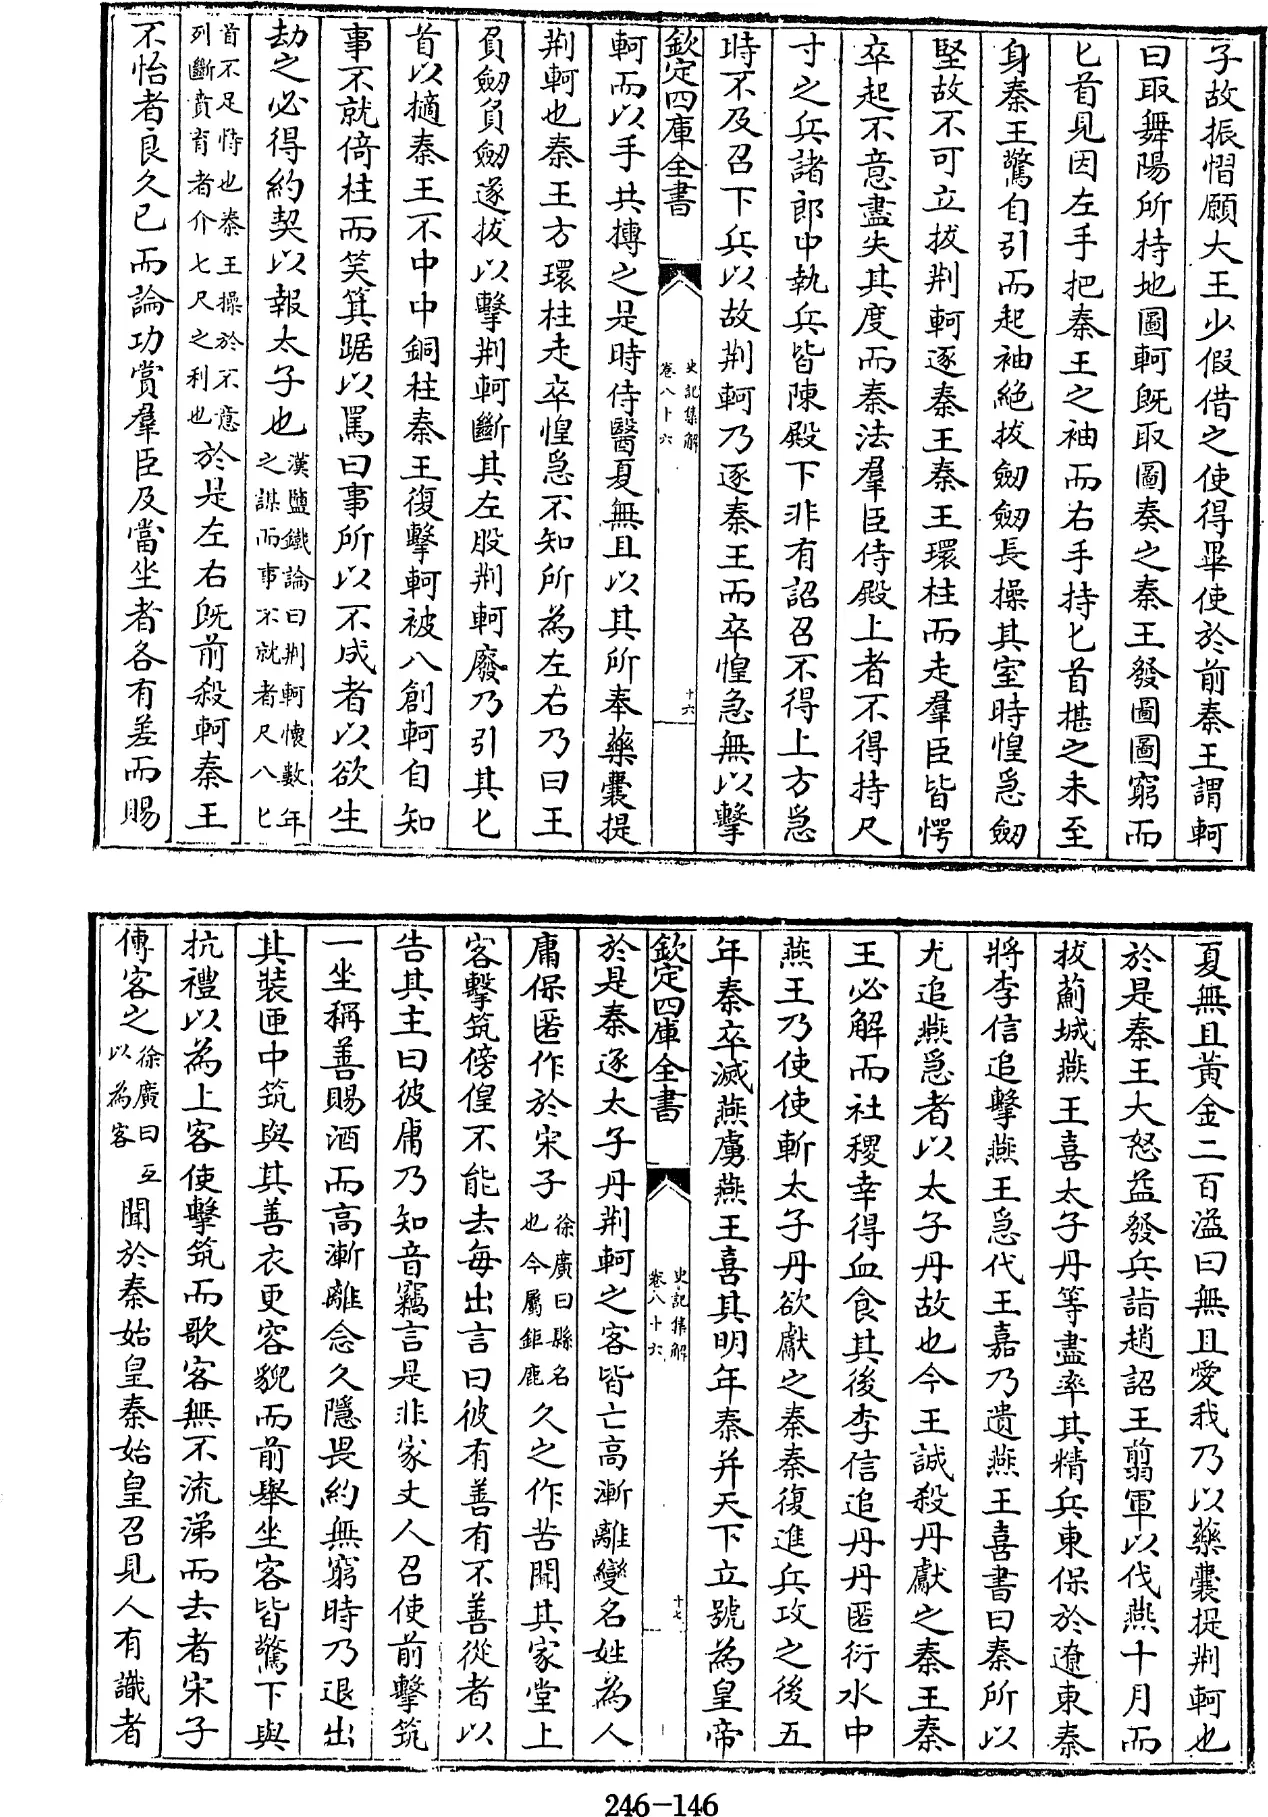 子故振慴願大王少假借之使得畢使於前秦王謂軻
曰取舞陽所持地圖軻既取圖奏之秦王發圖圖窮而
匕首見因左手把秦王之袖而右手持匕首揕之未至
身秦王驚自引而起袖絶拔劒劒長操其室時惶急劒
堅故不可立拔荆軻逐秦王秦王環柱而走羣臣皆愕
卒起不意盡失其度而秦法羣臣侍殿上者不得持尺
寸之兵諸郎中執兵皆陳殿下非有詔召不得上方急
時不及召下兵以故荆軻乃逐秦王而卒惶急無以擊
欽定四庫全書
史記集解
卷八十六
十六
軻而以手共搏之是時侍醫夏無且以其所奉藥囊提
荆軻也秦王方環柱走卒惶急不知所為左右乃曰王
負劒負劒遂拔以擊荆軻斷其左股荆軻廢乃引其匕
首以擿秦王不中中銅柱秦王復擊軻被八創軻自知
事不就倚柱而笑箕踞以罵曰事所以不成者以欲生
劫之必得約契以報太子也漢鹽鐵論曰荆軻懷數年之謀而事不就者尺八匕
首不足恃也秦王操於不意列斷賁育者介七尺之利也於是左右既前殺軻秦王
不怡者良久已而論功賞羣臣及當坐者各有差而賜
夏無且黄金二百溢曰無且愛我乃以藥囊提荆軻也
於是秦王大怒益發兵詣趙詔王翦軍以伐燕十月而
拔薊城燕王喜太子丹等盡率其精兵東保於遼東秦
將李信追擊燕王急代王嘉乃遺燕王喜書曰秦所以
尤追燕急者以太子丹故也今王誠殺丹獻之秦王秦
王必解而社稷幸得血食其後李信追丹丹匿衍水中
燕王乃使使斬太子丹欲獻之秦秦復進兵攻之後五
年秦卒滅燕虜燕王喜其明年秦并天下立號為皇帝
欽定四庫全書
史記集解
卷八十六
十七
於是秦逐太子丹荆軻之客皆亡高漸離變名姓為人
庸保匿作於宋子徐廣曰縣名也今屬鉅鹿久之作苦聞其家堂上
客擊筑傍偟不能去每出言曰彼有善有不善從者以
告其主曰彼庸乃知音竊言是非家丈人召使前擊筑
一坐稱善賜酒而高漸離念久隱畏約無窮時乃退出
其裝匣中筑與其善衣更容貌而前舉坐客皆驚下與
抗禮以為上客使擊筑而歌客無不流涕而去者宋子
傳客之徐廣曰互以為客聞於秦始皇秦始皇召見人有識者
246-146